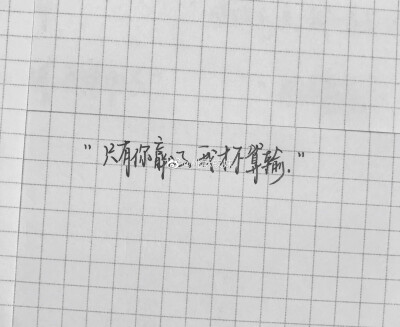 “只有你赢了,我才不算输.”